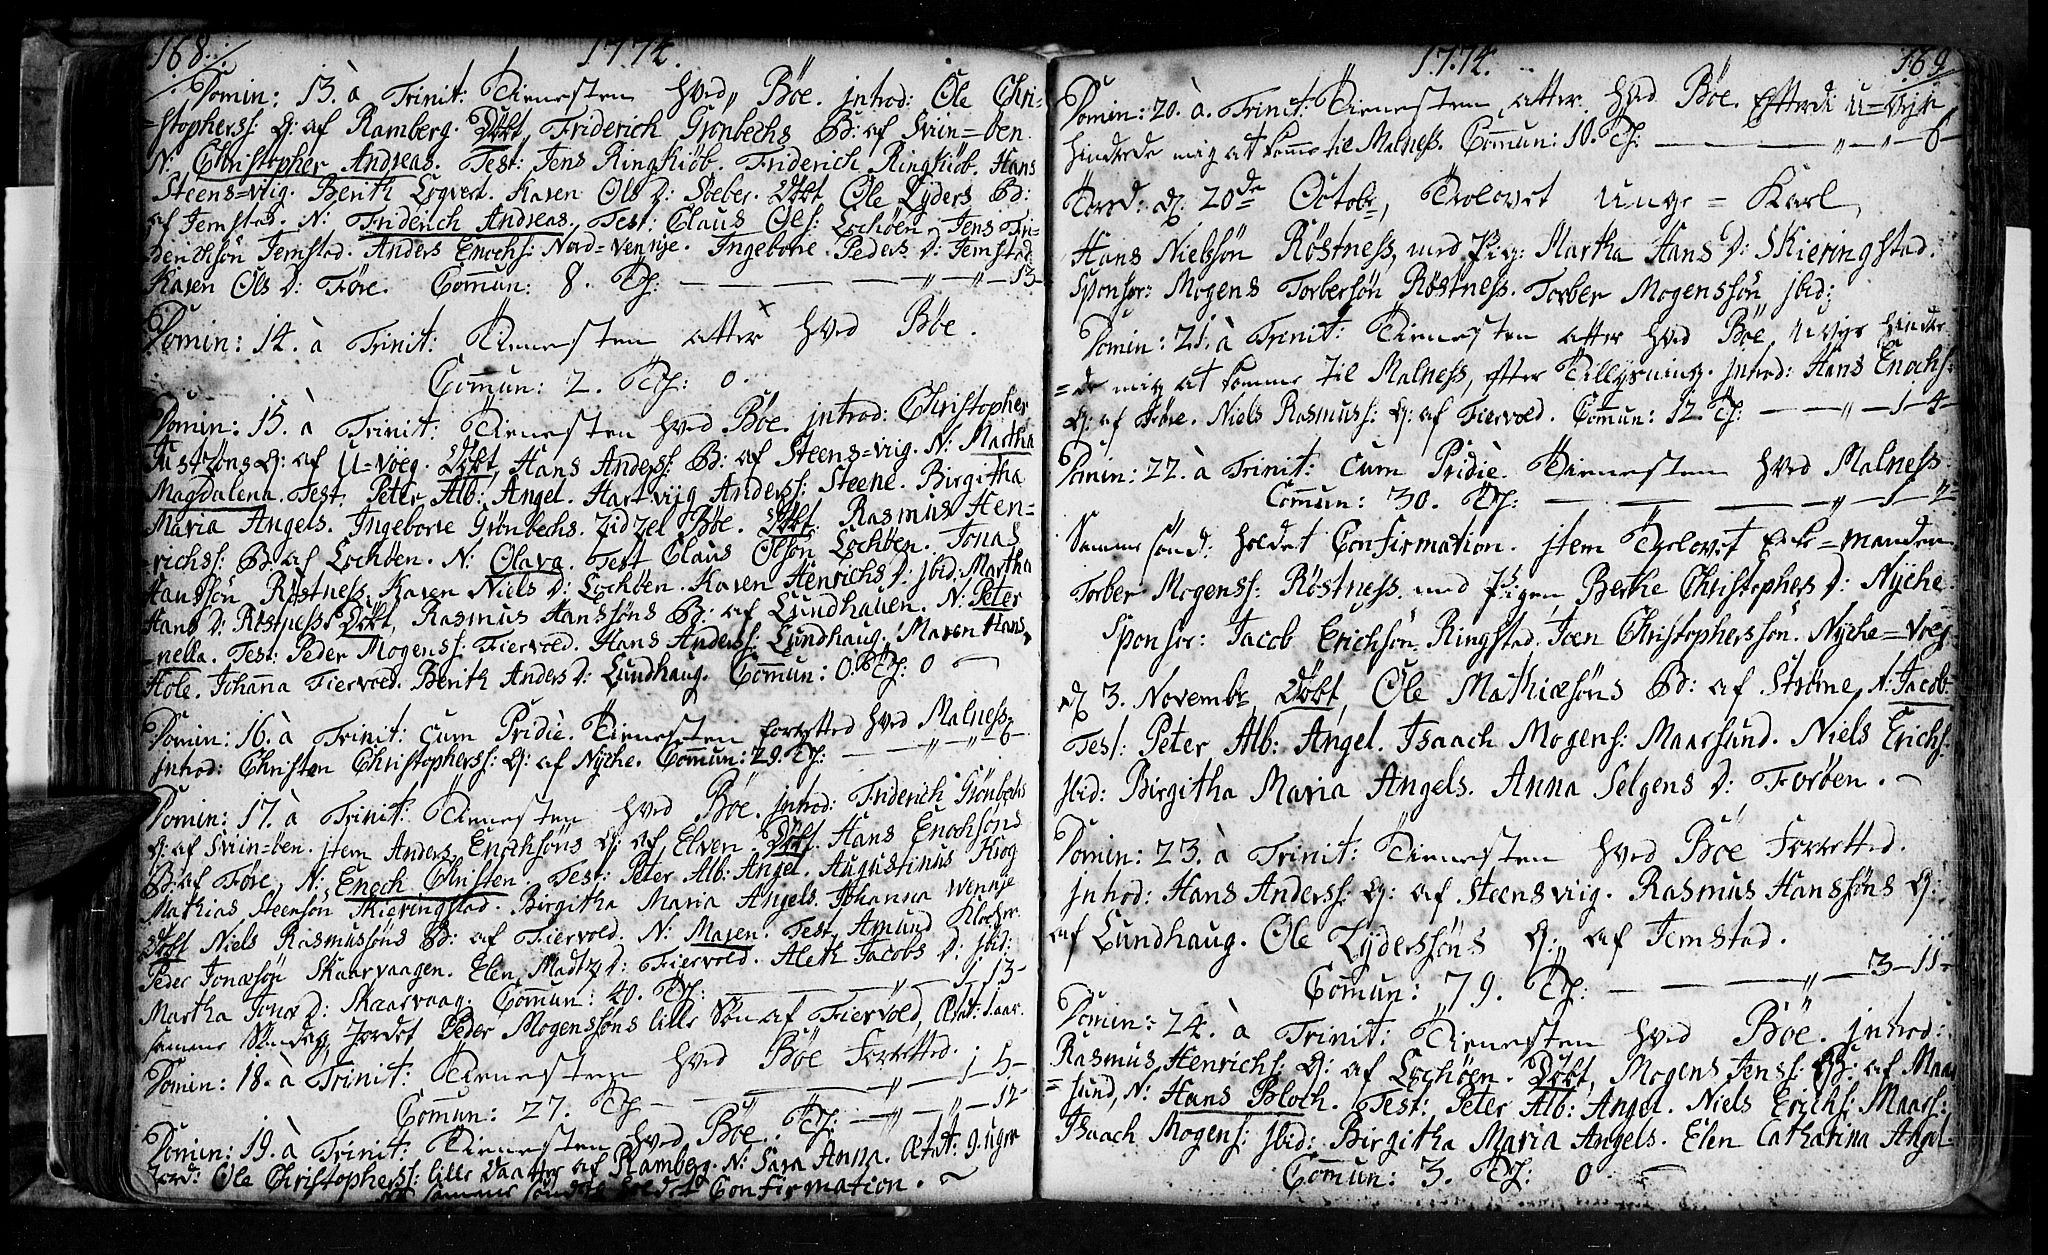 168.
1774.
Domin: 13. à Trinit: Tienesten hved Böe. jntrod: Ole Chri=
=stopherss: Q: af Ramberg. Döbt, Friderich Grönbechs B: af Sviin=öen.
N: Christopher Andreas. Test: Jens Ringkiöb. Friderich Ringkiöb. Hans
Steens=viig. Berith Lyqverd. Karen Ols D: Steber. Döbt, Ole Lyders B:
af Jemstad. N: Friderich Andreas. Test: Claus Ols: Lochöen. Jens Fri=
derichsön Jemstad. Anders Enochs: Nord=Vennje. Ingeborre Peders D: Jemstad.
Karen Ols D: Före. Com̄un: 8. Tf: — — — „ — „ — 13-
Domin: 14. à Trinit: Tienesten atter hved Böe.
Com̄un: 2. Tf: 0.
Domin: 15. à Trinit: Tienesten hved Böe. jntrod: Christopher
Justzöns Q: af U=vöeg. Döbt, Hans Anderss: B: af Steens=viig. N: Martha
Magdalena. Test: Peter Alb: Angel. Hartvijg Anderss: Steene. Birgitha
Maria Angels. Ingeborre Grönbechs. Zidzel Böe. Döbt. Rasmus Hen=
=richs: B: af Lochöen. N: Olava. Test Claus Olsön Lochöen. Jonas
Hanssön Röstness. Karen Niels D: Lochöen. Karen Henrichs D: jbid: Martha
Hans D: Röstness. Döbt, Rasmus Hanssöns B: af Lundhauen. N: Peter
=nella. Test: Peder Mogenss: Fiervoed. Hans Anderss: Lundhaug. Maren Hans,
Hole. Johan̄a Fiervoed. Berith Anders D: Lundhaug. Com̄un: 0. Tf: 0 —
Domin: 16. à Trinit: cum Pridie. Tienesten forretted hved Malness.
jntrod: Christen Christopherss: Q: af Nyche. Com̄un: 29. Tf: — „ — „ — 6-
Domin: 17. à Trinit: Tienesten hved Böe. jntrod: Friderich Grönbechs
Q: af Sviin=öen. jtem Anders Enochsöns Q: af Elven. Döbt. Hans Enochsöns
B: af Före, N: Enoch Christen. Test: Peter Alb: Angel. Augustinus Krog
Mathias Steensön Skieringstad. Birgitha Maria Angels. Johanna Wennje
Döbt Niels Rasmussöns B: af Fiervoed. N: Maren. Test, Amund Klocher.
Peder Jonæsön Skaarvaagen. Elen Madtz D: Fiervoed. Aleth Jacobs D: jbid:
Martha Jonæ D: Skaarvaag. Com̄un: 40. Tf: — — „ — 1 13-
samme Söndag Jordet Peder Mogenssöns lille Sön af Fiervoed, Ætat: 1. aar.
Domin: 18. à Trinit: Tienesten hved Böe Forretted.
Com̄un: 27. Tf — — — „ — 1 5-
Domin: 19. à Trinit: Tienesten hved Böe. Tf: — „ — „ — 12-
Jord: Ole Christopherss: lille Daatter af Ramberg. N: Sara Anna. Ætat: 9. uger
samme söndag holdet Confirmation.
1774.
169
Domin: 20. à Trinit: Tienesten atter hved Böe. Efterdi U=vejr
hinderede mig at komme til Malness. Com̄un: 10. Tf: — — — „ — „ — 6-
Torsd: d: 20de Octobr, Trolovet unge=Karl
Hans Nielssön Röstness, med Pig: Martha Hans D: Skieringstad.
Sponsor: Mogens Torbersön Röstness. Torber Mogenssön, jbid:
Domin: 21. à Trinit: Tienesten atter hved Böe, uvejr hinde=
=de mig at komme til Malness, efter Tillysning. jntrod: Hans Enochs:
Q: af Före. Niels Rasmuss: Q: af Fiervoed. Com̄un: 12. Tf: — — „ — 1-4-
Domin: 22. à Trinit: cum Pridie. Tienesten hved Malness.
Com̄un: 30. Tf: — — — „ — 1 2-
Samme sönd: holdet Confirmation. jtem Trolovet Enke=manden
Torber Mogenss: Röstness med Pigen Berthe Christophers D: Nyche
Sponsor: Jacob Erichsön Ringstad. Joen Christopherssön. Nyche=voej
d: 3. Novembr, Döbt, Ole Mathiæsöns B: af Ströme, N: Jacob.
Test: Peter Alb: Angel. Isaach Mogens: Maarsund. Niels Erichs:
jbid: Birgitha Maria Angels. Anna Selgens D: Foröen. —
Domin: 23. à Trinit: Tienesten hved Böe Forrettet.
jntrod: Hans Anderss: Q: af Steensviig. Rasmus Hanssöns Q:
af Lundhaug. Ole Lyderssöns Q: af Jemstad.
Com̄un: 79. Tf: — — — „ — 3-11-
Domin: 24. à Trinit: Tienesten hved Böe. jntrod:
Rasmus Henrichs: Q: af Lochöen. Döbt, Mogens Jens: B: af Maar
=sund, N: Hans Bloch. Test: Peter Alb: Angel. Niels Erichs: Maars:
Isaach Mogens: jbid: Birgitha Maria Angels. Elen Catharina Angel.
Com̄un: 3. Tf: 0 —